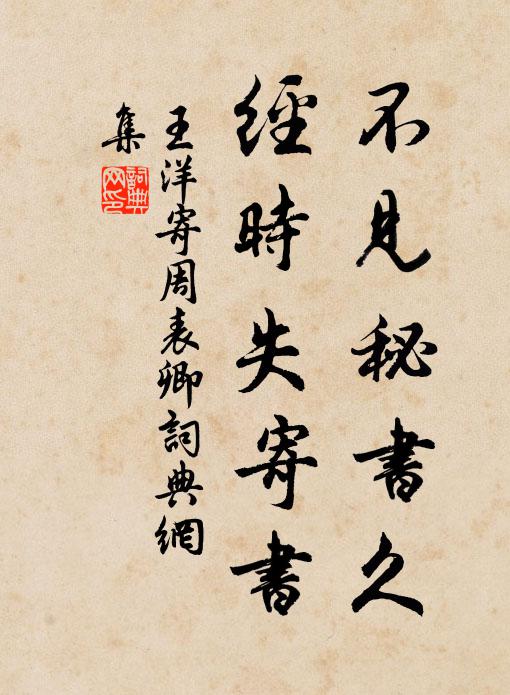 不見秘書久
經時失寄書
王洋寄周表卿詞典網
集
詞典
网印